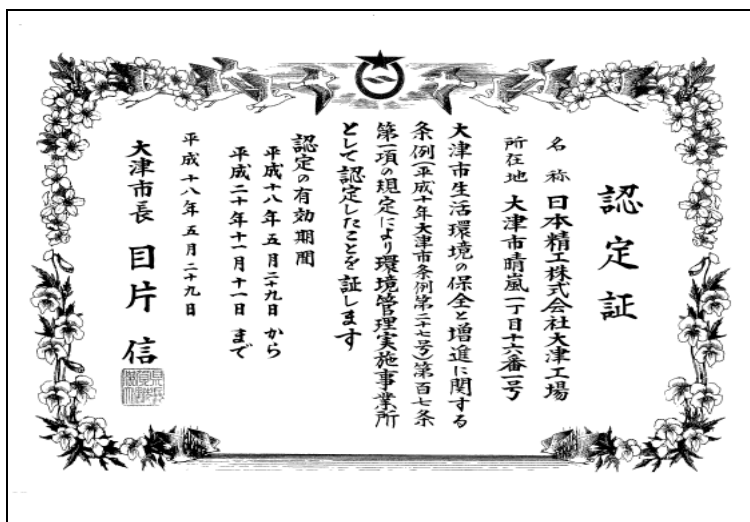 認定証
名称 日本精工株式会社大津工場
所在地 大津市晴嵐一丁目十六番一号
大津市生活環境の保全と増進に関する
条例(平成十年大津市条例第二十七号)第百七条
第一項の規定により環境管理実施事業所
として認定したことを証します
認定の有効期間
平成十八年五月二十九日から
平成二十年十一月十一日まで
平成十八年五月二十九日
大津市長 目片信